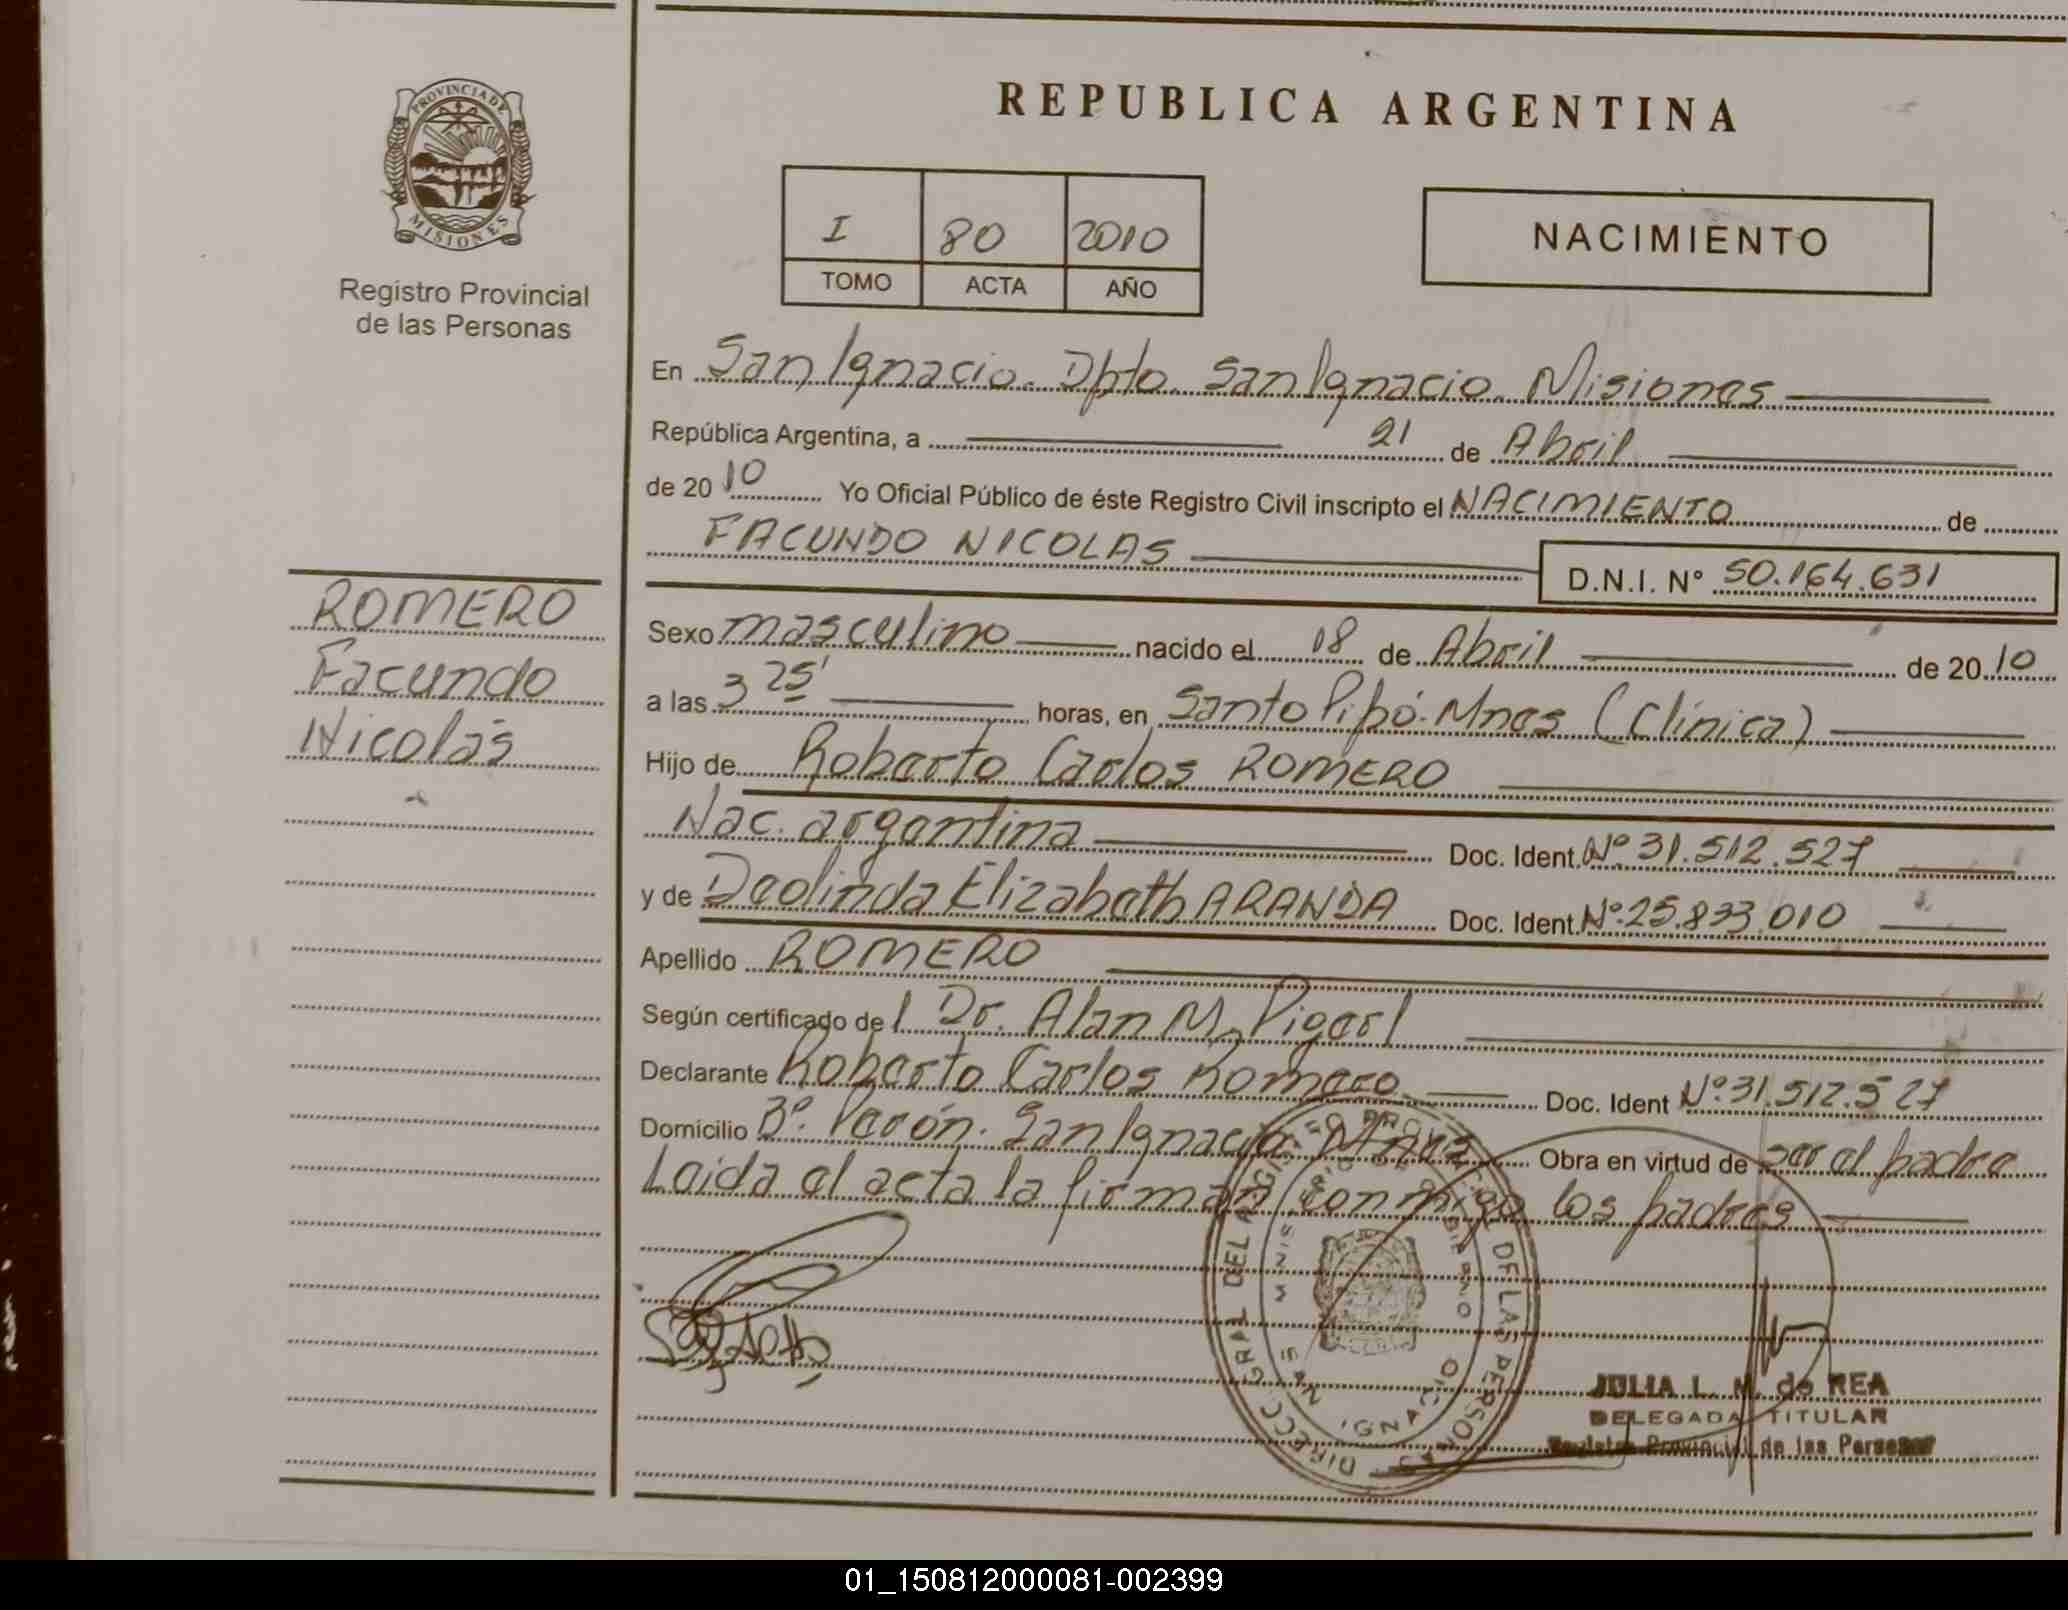 PROVINCIA DE
MISIONES
Registro Provincial
de las Personas
REPUBLICA ARGENTINA
I 80 2010
TOMO ACTA AÑO
NACIMIENTO
En San Ignacio. Dpto. San Ignacio. Misiones
República Argentina, a 21 de Abril
de 2010 Yo Oficial Público de éste Registro Civil inscripto el NACIMIENTO de
FACUNDO NICOLAS
D.N.I. N° 50.164.631
ROMERO
Facundo
Nicolás
Sexo masculino nacido el 18 de Abril de 2010
a las 3 25' horas, en Santo Pipó. Mnes (Clínica)
Hijo de Roberto Carlos ROMERO
Nac. argentina Doc. Ident. Nº 31.512.527
y de Deolinda Elizabeth ARANDA Doc. Ident. Nº 25.833.010
Apellido ROMERO
Según certificado del Dr. Alan M. Pigerl
Declarante Roberto Carlos Romero Doc. Ident Nº 31.512.527
Domicilio Bº. Perón. San Ignacio Mnes Obra en virtud de ser el padre
Leida el acta la firman conmigo los padres
JULIA L. M. de REA
DELEGADA TITULAR
Registro Provincial de las Personas
01_150812000081-002399